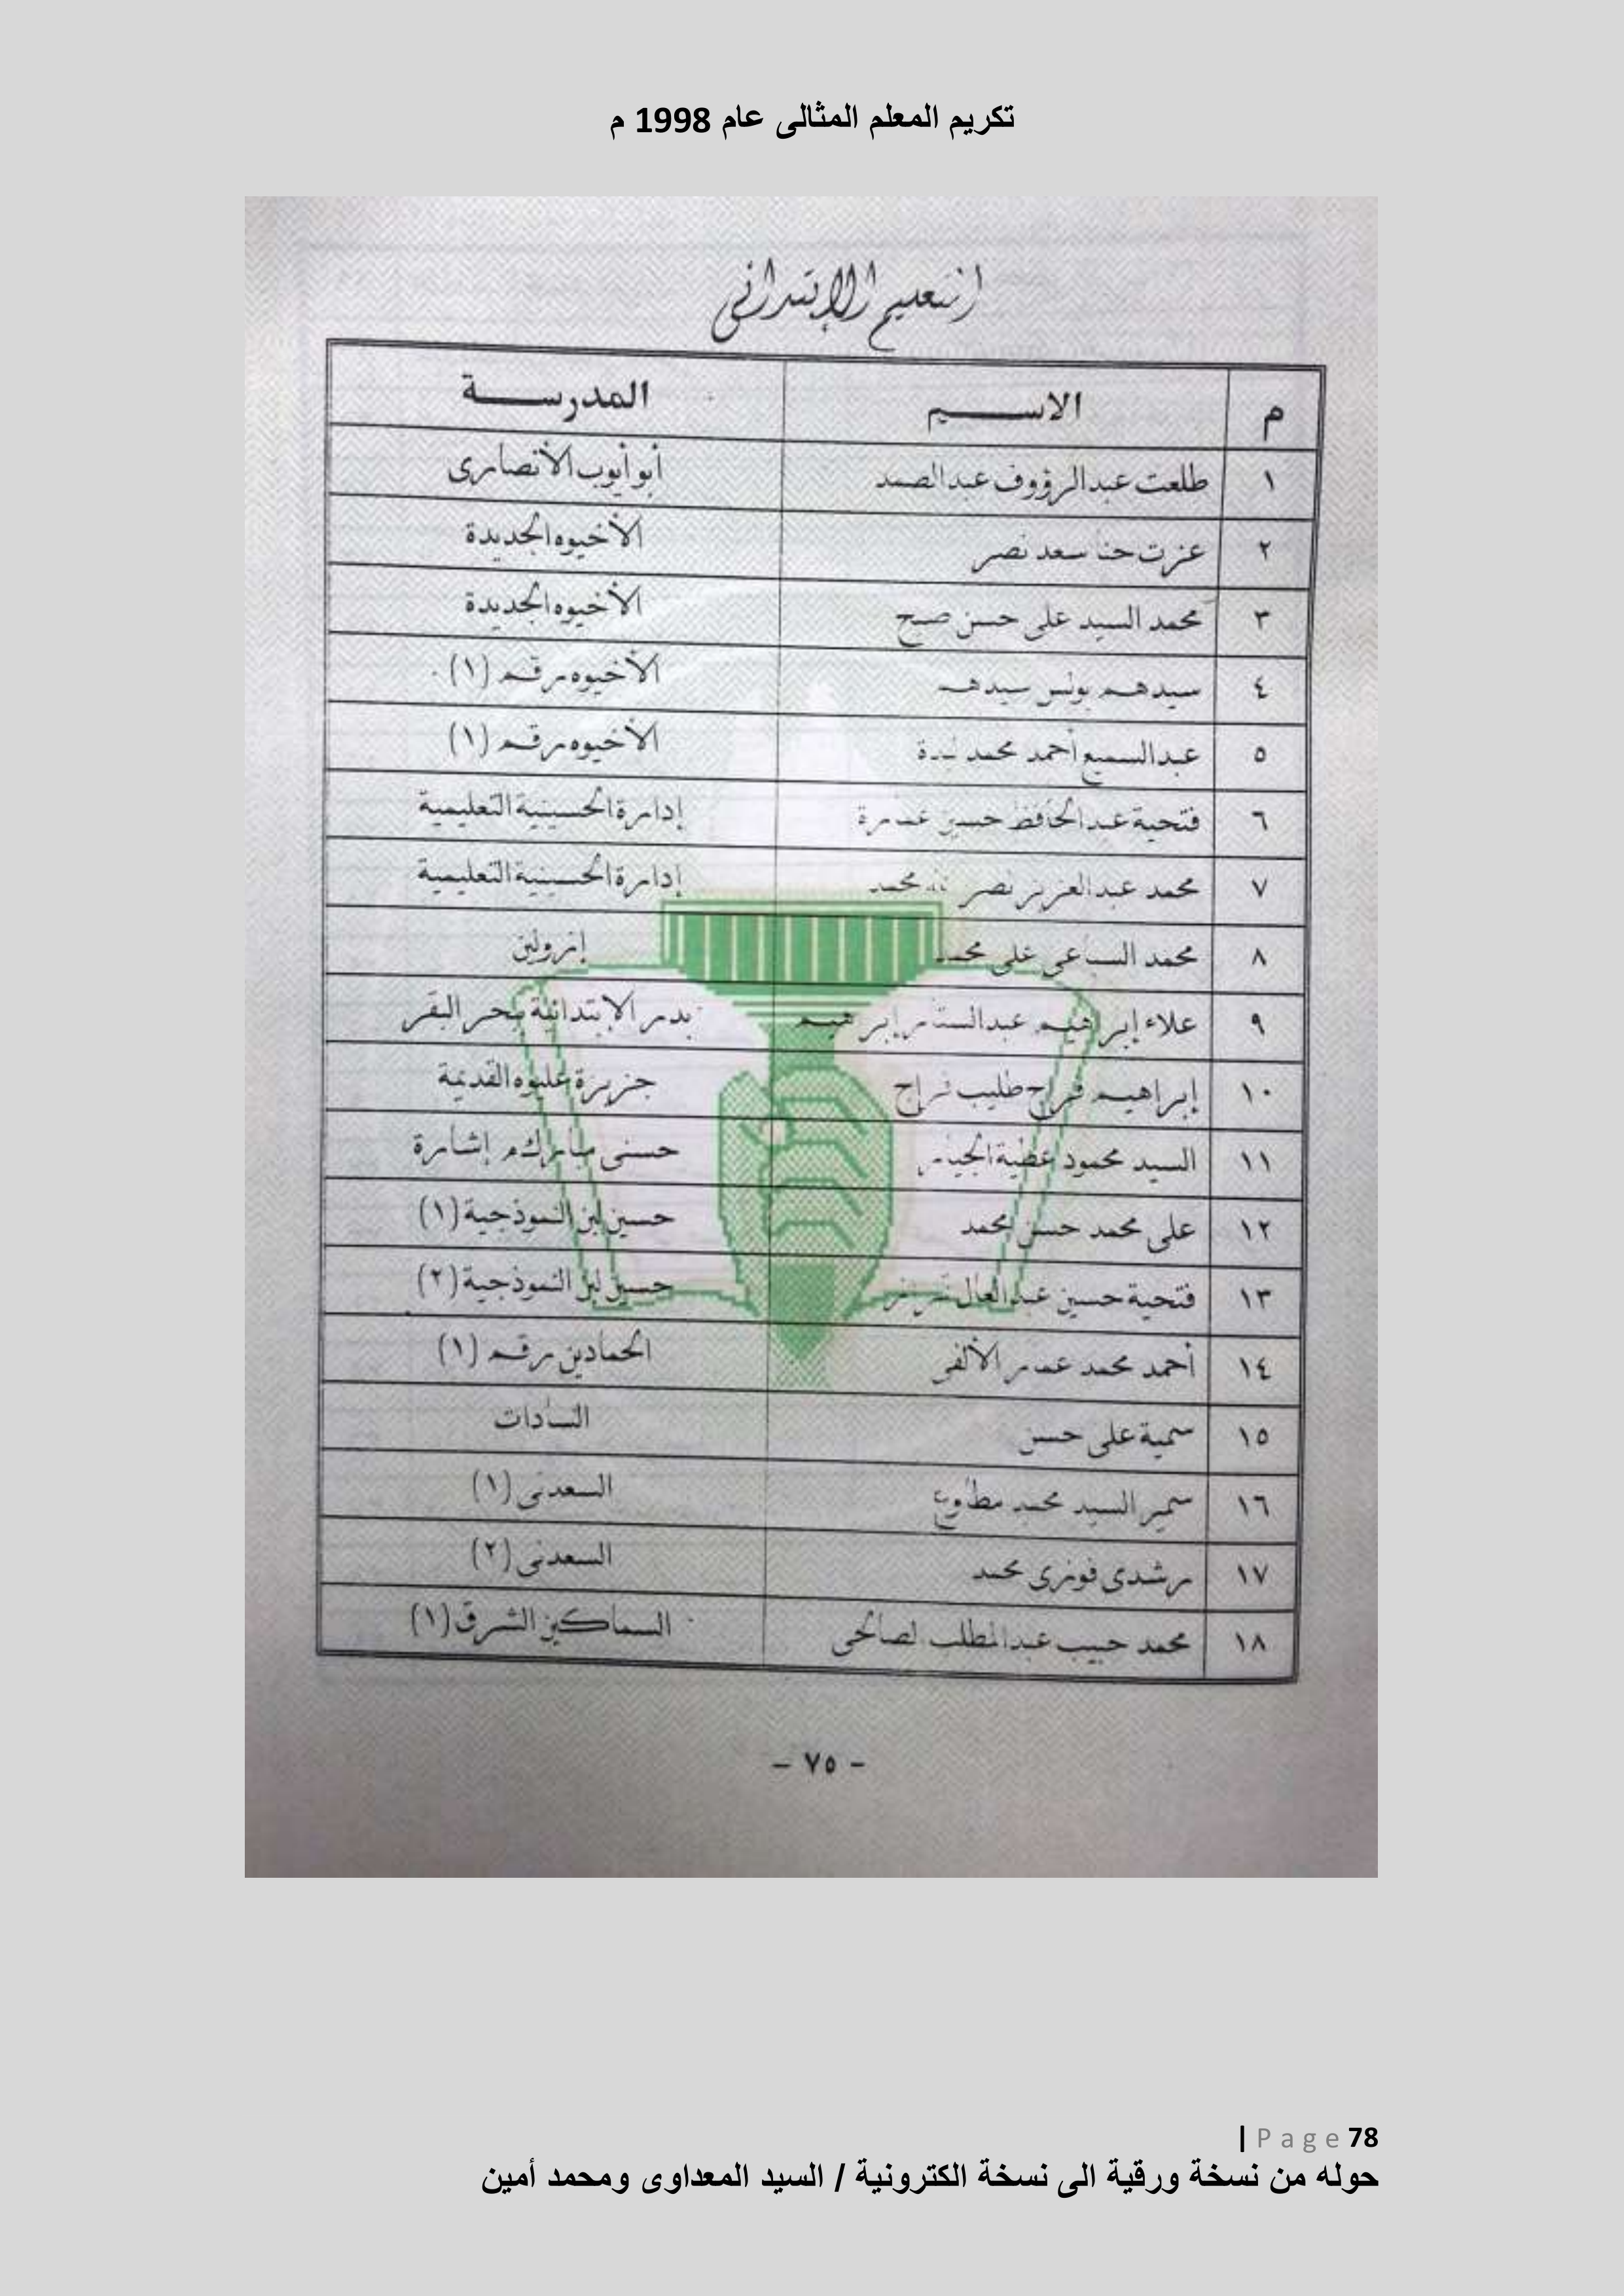 تكريم المعلم المثالى عام 1998 م
التعليم الإبتدائى
م الاسـم المدرسـة
١ طلعت عبدالرؤوف عبدالصمد أبو أيوب الأنصارى
٢ عزت حنا سعد نصر الأخيوه الجديدة
٣ محمد السيد على حسن صبح الأخيوه الجديدة
٤ سيدهم يونس سيدهم الأخيوه رقم (١)
٥ عبدالسميع أحمد محمد الأخيوه رقم (١)
٦ فتحية عبدالحافظ حسين إدارة الحسينية التعليمية
٧ محمد عبدالعزيز نصر محمد إدارة الحسينية التعليمية
٨ محمد السباعى على محمد
٩ علاء إبراهيم عبدالستار إبراهيم بدر الإبتدائية ببحر البقر
١٠ إبراهيم فراج طليب فراج جزيرة عليوه القديمة
١١ السيد محمود عطية حسنى مبارك م إشارة
١٢ على محمد حسن محمد حسين لبن النموذجية (١)
١٣ فتحية حسين عبدالعال حسين لبن النموذجية (٢)
١٤ أحمد محمد عمر الألفى الحمادين رقم (١)
١٥ سمية على حسن السادات
١٦ سمير السيد محمد مطاوع السعدنى (١)
١٧ رشدى فوزى محمد السعدنى (٢)
١٨ محمد حبيب عبدالمطلب الصالحى السماكين الشرق (١)
- ٧٥ -
| Page 78
حوله من نسخة ورقية الى نسخة الكترونية / السيد المعداوى ومحمد أمين